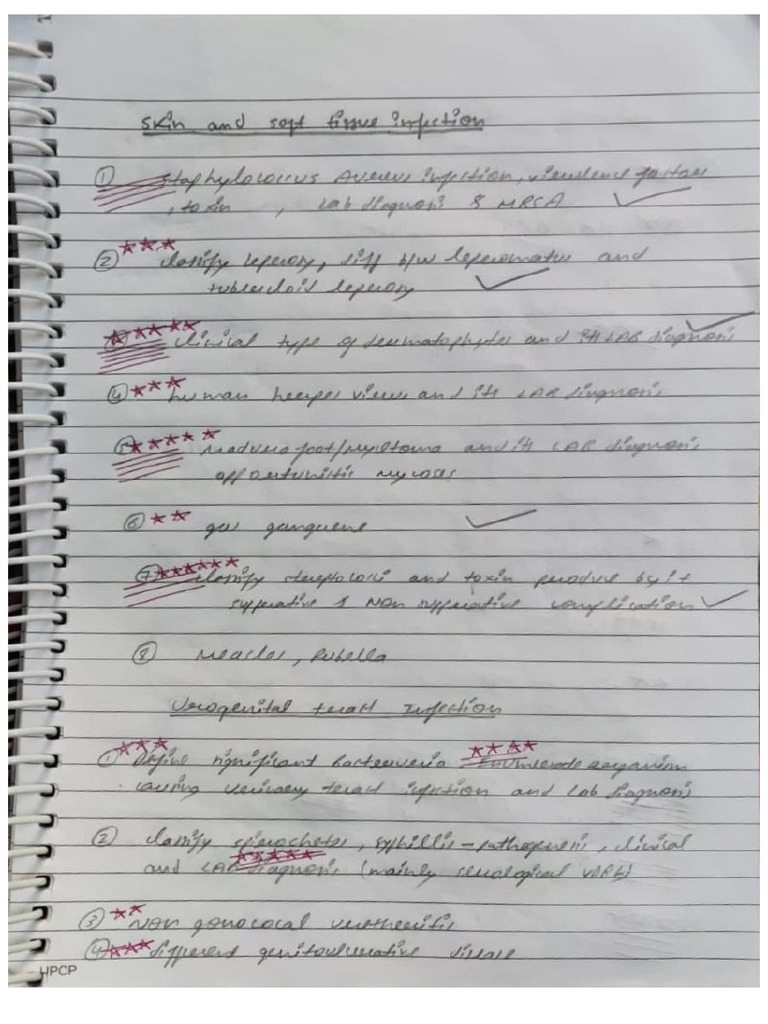 Skin and soft tissue infection
① Staphylococcus Aureus infection, virulence factors
, toxin , Lab diagnosis & MRSA
② *** classify leprosy, diff b/w lepromatus and
tuberculoid leprosy
***** clinical type of dermatophytes and its LAB diagnosis
④ *** human herpes virus and its LAB diagnosis
⑤ ***** madura foot/mycetoma and its LAB diagnosis
opportunistic mycoses
⑥ ** gas gangrene
⑦ ****** classify streptococci and toxin produce by it
suppurative & NON suppurative complication
⑧ Measles, Rubella
Urogenital tract infection
① *** Define significant bacteuria **** Enumerate organism
causing urinary tract infection and Lab diagnosis
② classify spirochetes, syphillis - pathogenesis, clinical
and LAB diagnosis (mainly serological VDRL)
③ ** NON gonococal urethritis
④ *** different genitoulcerative disease
HPCP